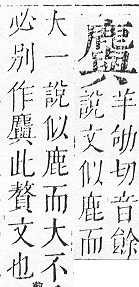 羊劬切音餘
說文似鹿而
大一說似鹿而大不
必別作此贅文也